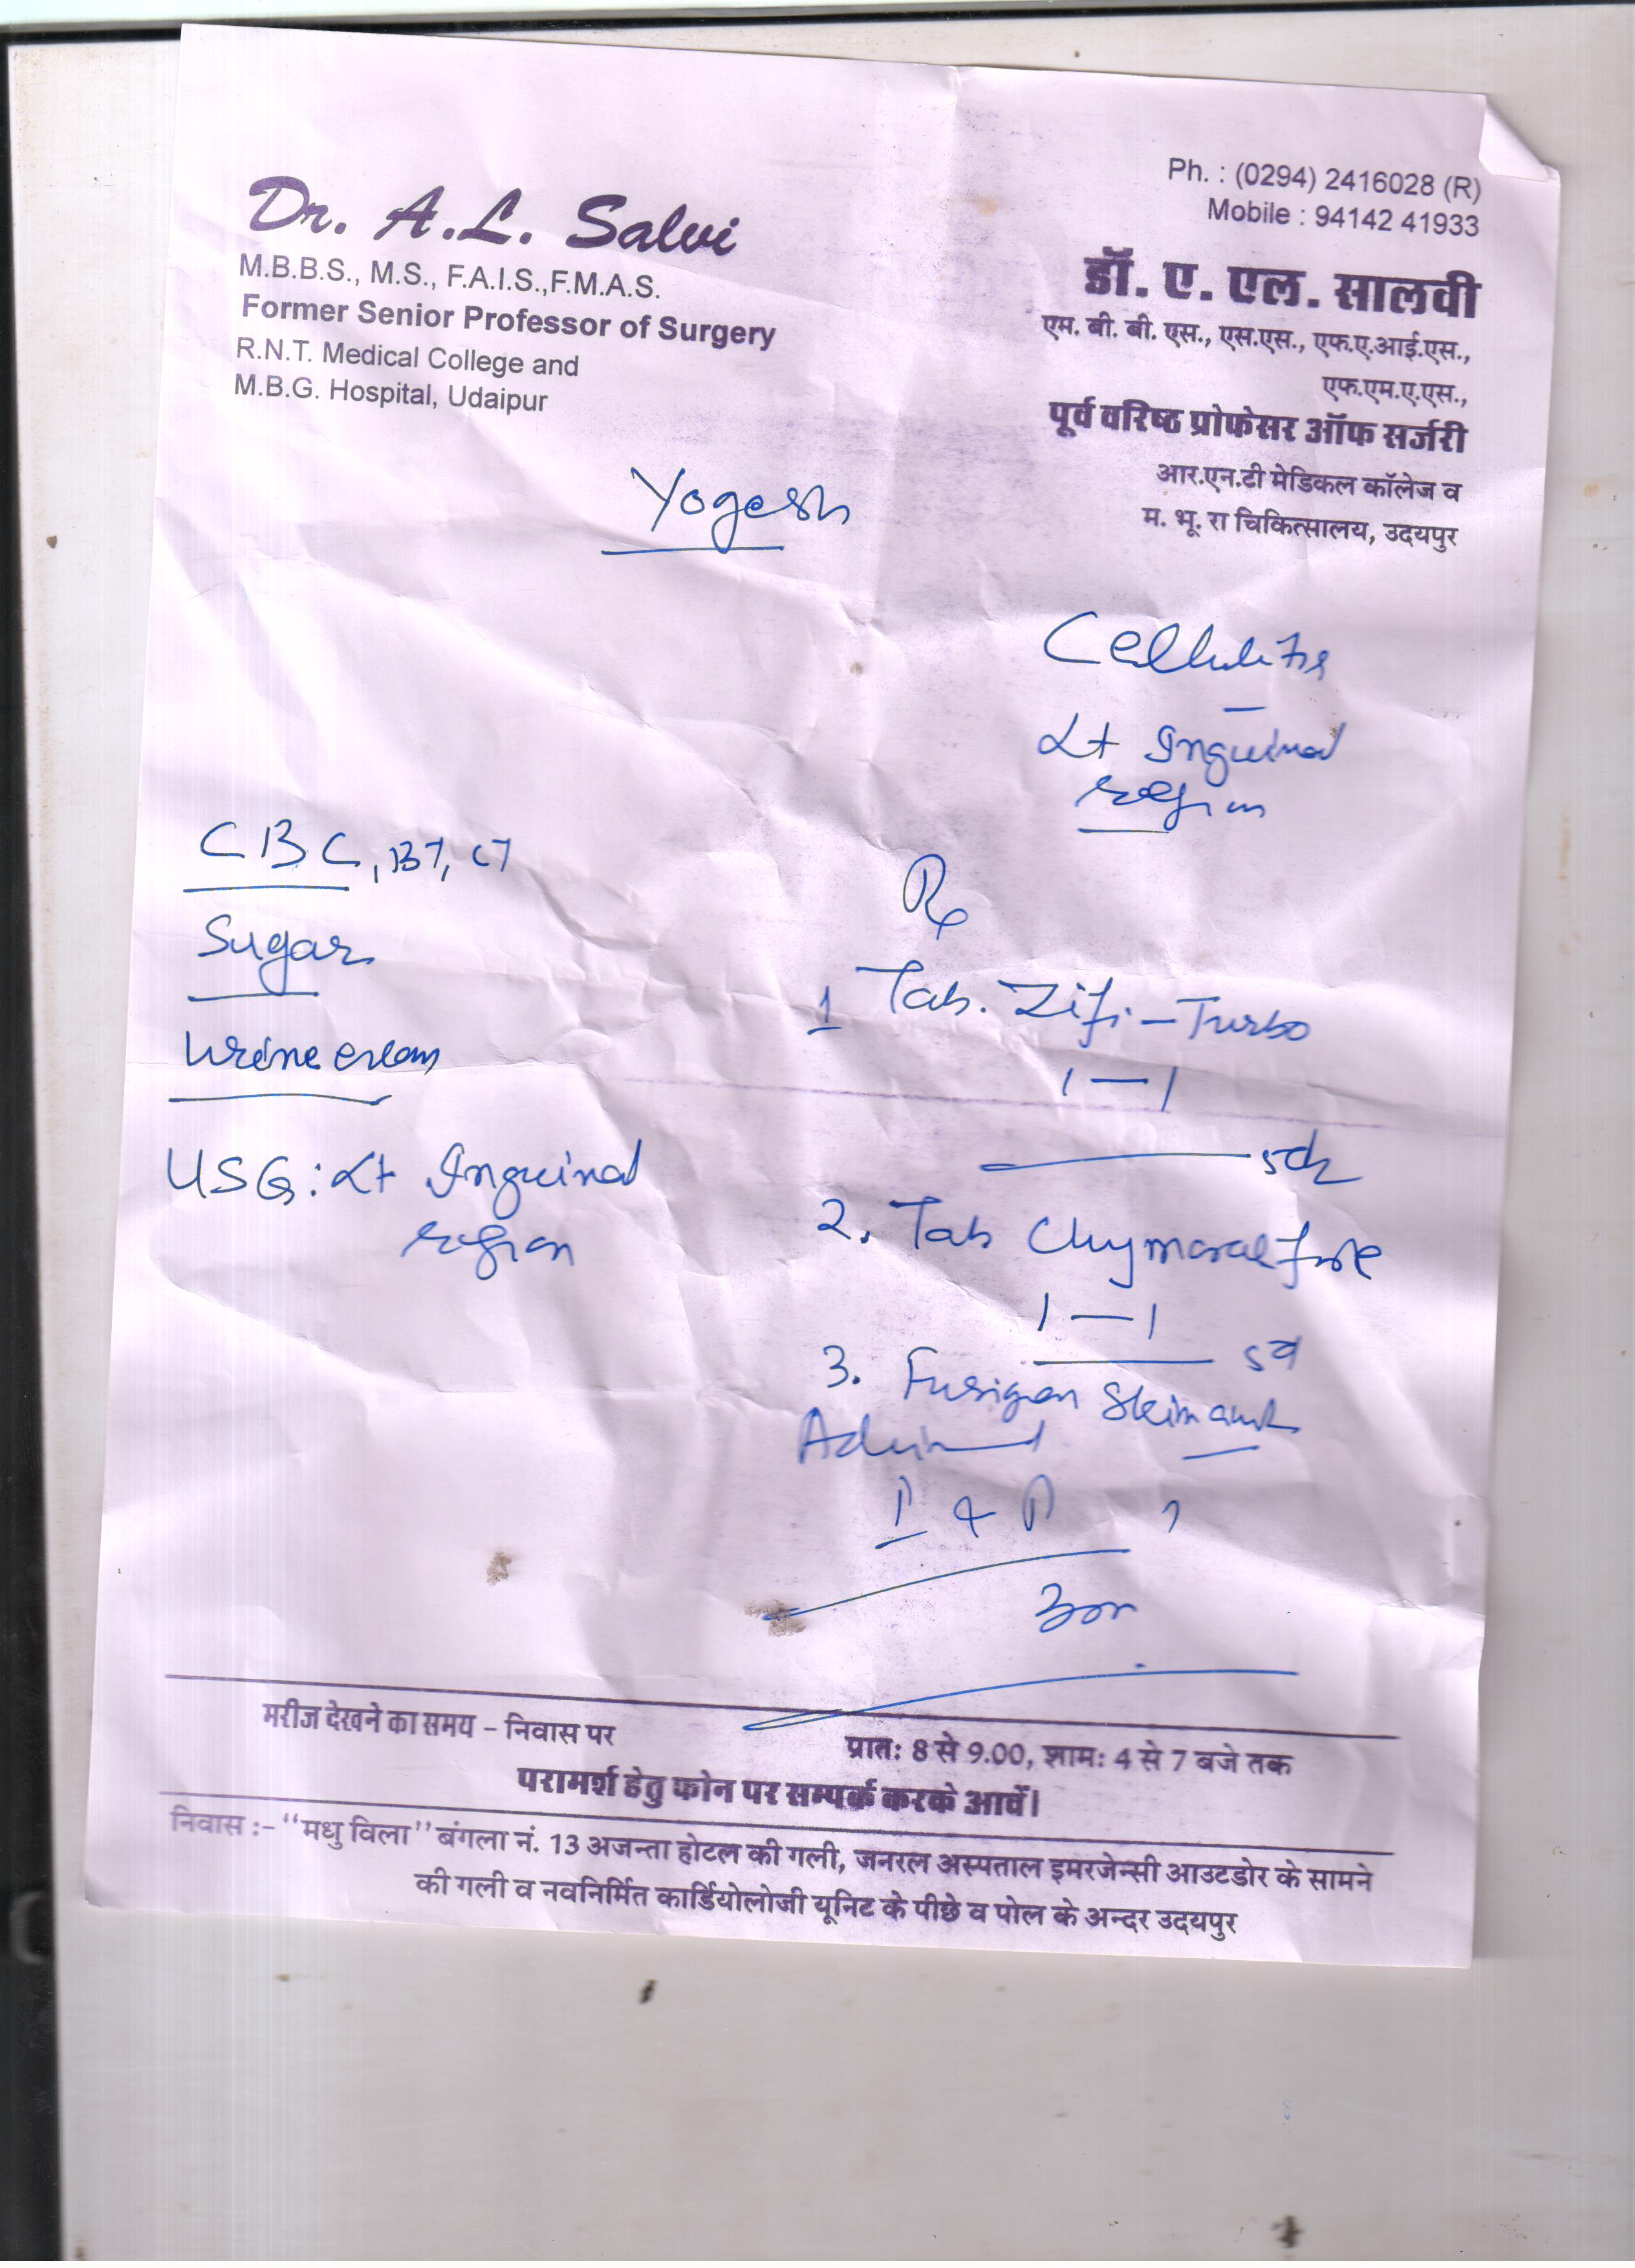 Dr. A.L. Salvi
M.B.B.S., M.S., F.A.I.S.,F.M.A.S.
Former Senior Professor of Surgery
R.N.T. Medical College and
M.B.G. Hospital, Udaipur
Ph. : (0294) 2416028 (R)
Mobile : 94142 41933
डॉ. ए. एल. सालवी
एम. बी. बी. एस., एस.एस., एफ.ए.आई.एस.,
एफ.एम.ए.एस.,
पूर्व वरिष्ठ प्रोफेसर ऑफ सर्जरी
आर.एन.टी मेडिकल कॉलेज व
म. भू. रा चिकित्सालय, उदयपुर
Yogesh
Cellulitis
Lt Inguinal
region
CBC, BT, CT
Sugar
Urine exam
USG: Lt Inguinal
region
Rx
1 Tab. Zifi-Turbo
1—1
5d
2. Tab Chymoral forte
1—1
5d
3.
मरीज देखने का समय – निवास पर
प्रातः 8 से 9.00, शामः 4 से 7 बजे तक
परामर्श हेतु फोन पर सम्पर्क करके आवें।
निवास :– "मधु विला" बंगला नं. 13 अजन्ता होटल की गली, जनरल अस्पताल इमरजेन्सी आउटडोर के सामने
की गली व नवनिर्मित कार्डियोलोजी यूनिट के पीछे व पोल के अन्दर उदयपुर